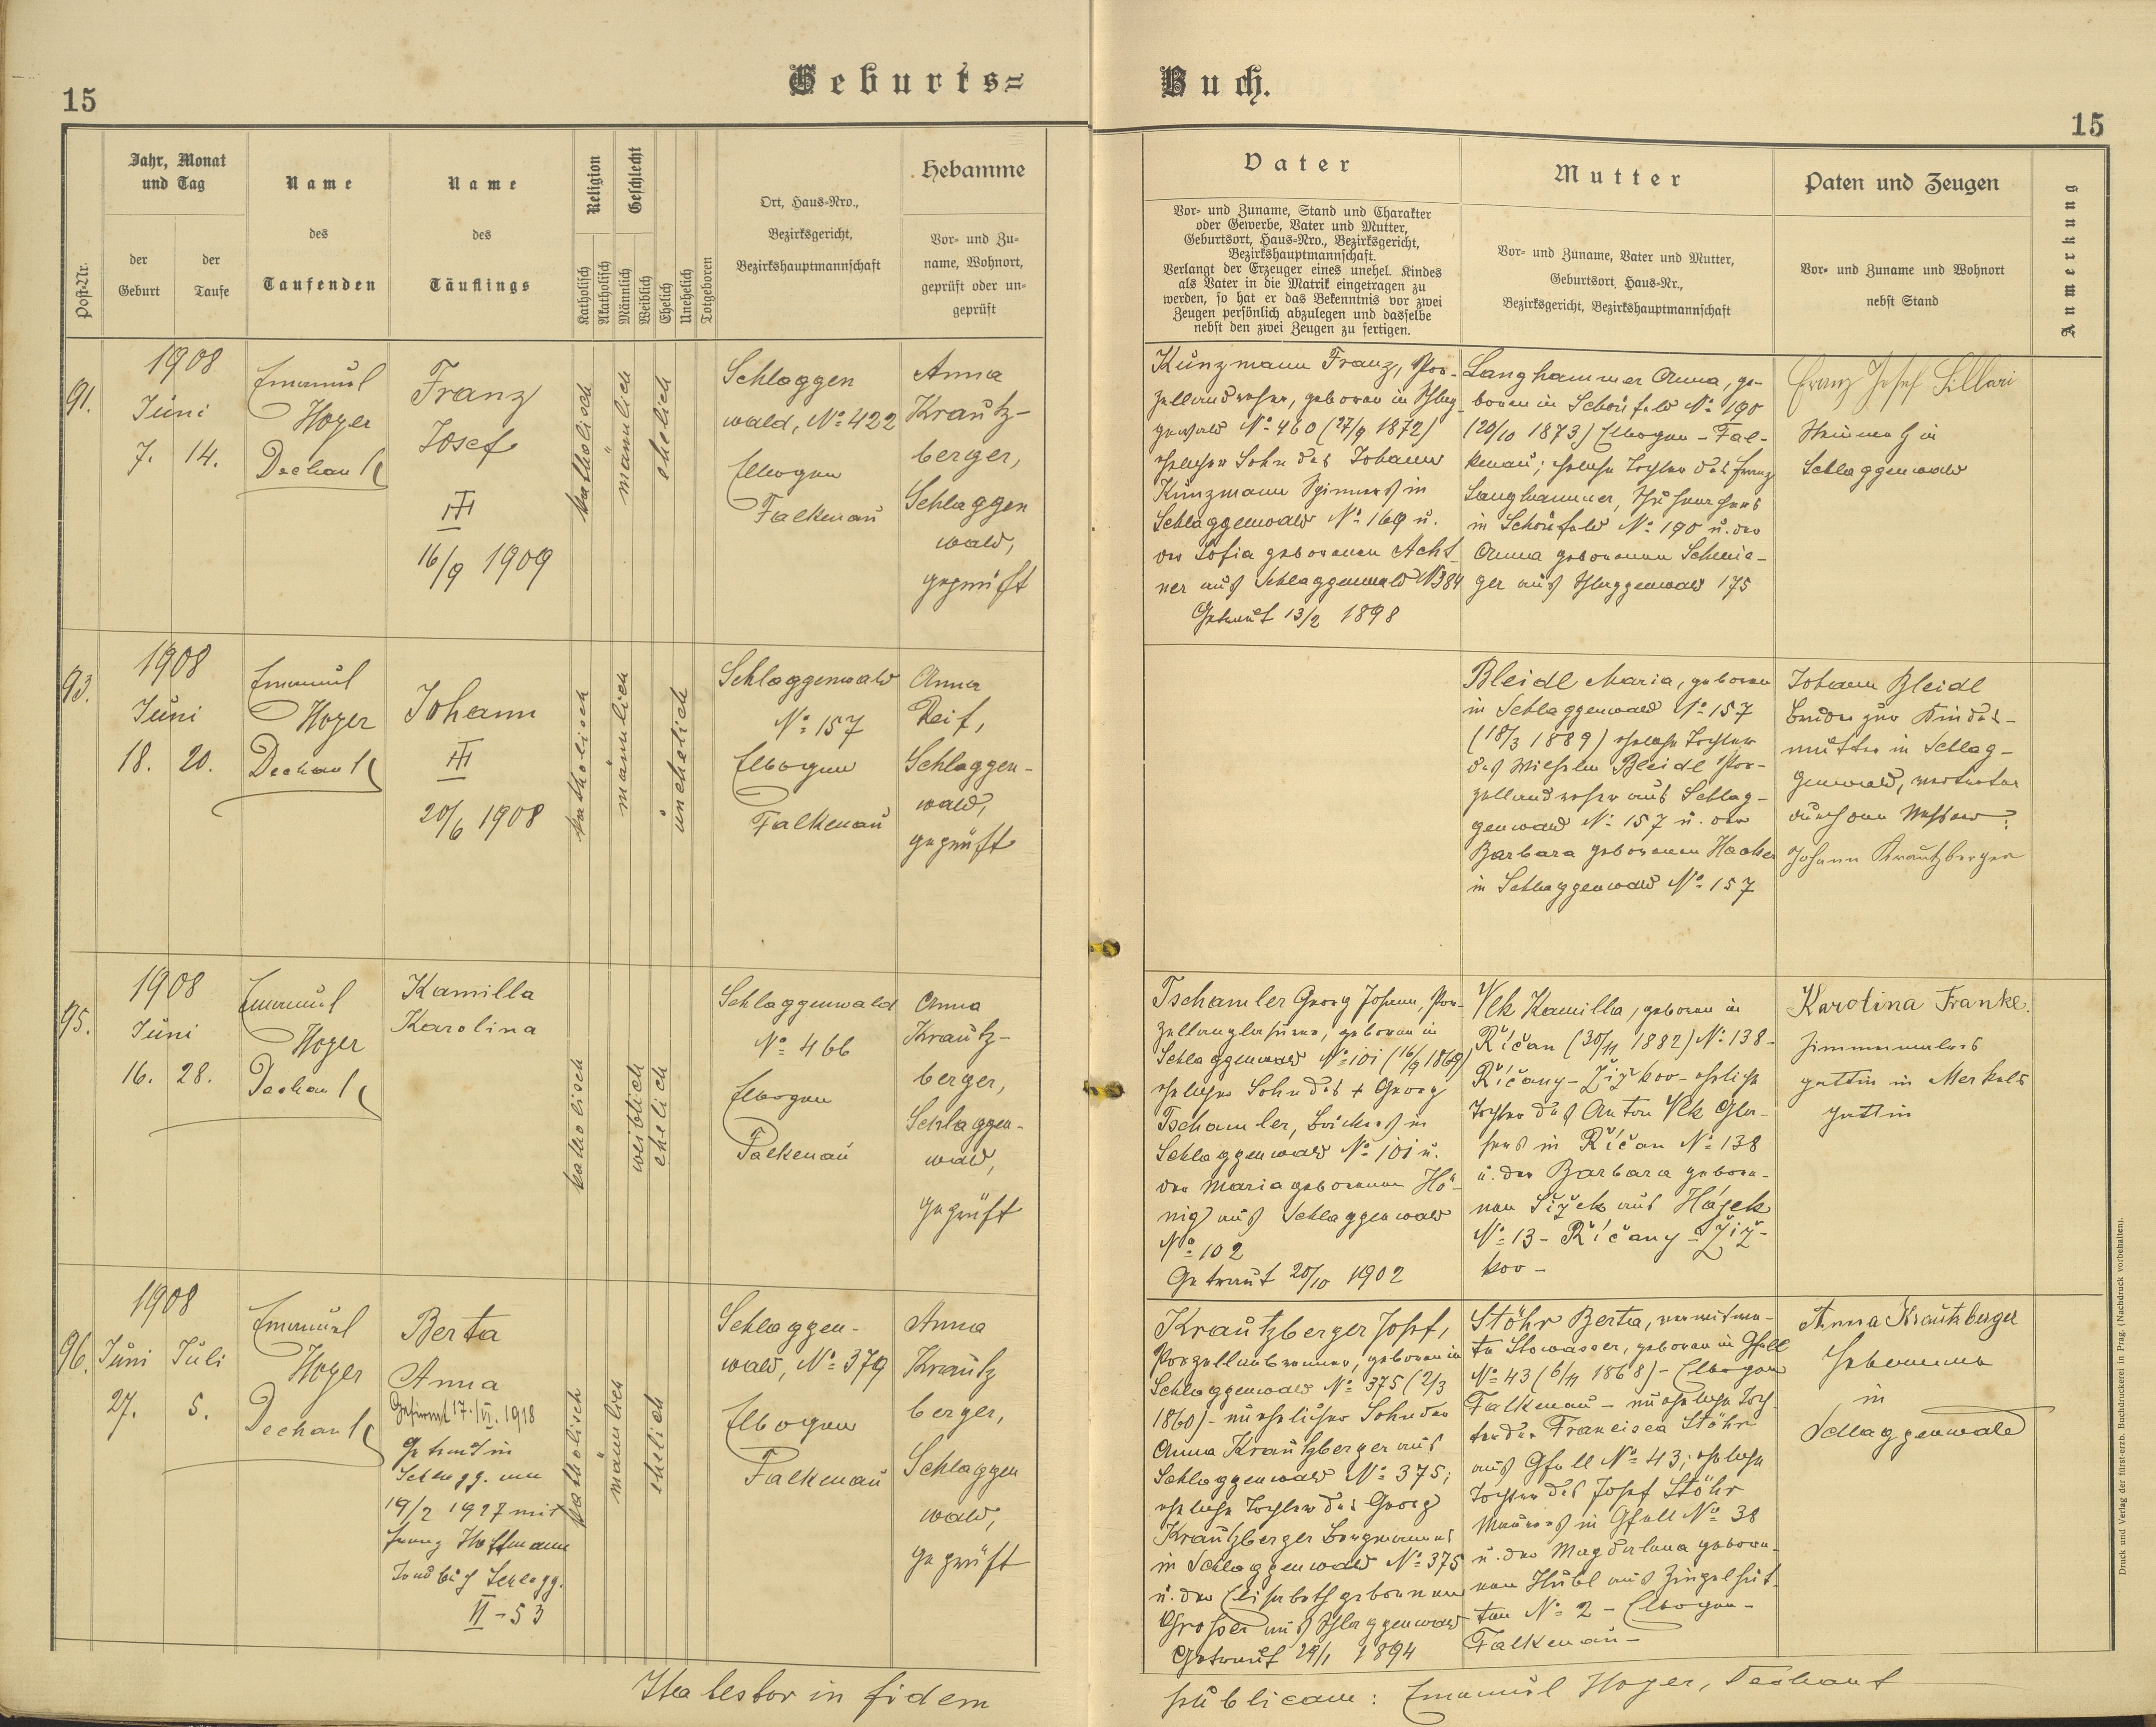 15
Geburts=
Buch.
15
Post-Nr.
Jahr, Monat
und Tag
der
Geburt
der
Taufe
Name
des
Taufenden
Name
des
Täuflings
Religion
Katholisch
Akatholisch
Geschlecht
Männlich
Weiblich
Ehelich
Unehelich
Totgeboren
Ort, Haus-Nro.,
Bezirksgericht,
Bezirkshauptmannschaft
Hebamme
Vor- und Zu-
name, Wohnort,
geprüft oder un-
geprüft
Vater
Vor- und Zuname, Stand und Charakter
oder Gewerbe, Vater und Mutter,
Geburtsort, Haus-Nro., Bezirksgericht,
Bezirkshauptmannschaft.
Verlangt der Erzeuger eines unehel. Kindes
als Vater in die Matrik eingetragen zu
werden, so hat er das Bekenntnis vor zwei
Zeugen persönlich abzulegen und dasselbe
nebst den zwei Zeugen zu fertigen.
Mutter
Vor- und Zuname, Vater und Mutter,
Geburtsort, Haus-Nr.,
Bezirksgericht, Bezirkshauptmannschaft
Paten und Zeugen
Vor- und Zuname und Wohnort
nebst Stand
Anmerkung
91.
1908
Juni
7. 14.
Emanuel
Hoyer
Dechant
Franz
Josef
III
16/9 1909
katholisch
männlich
ehelich
Schlaggen
wald, No 422
Elbogen
Falkenau
Anna
Krautz-
berger,
Schlaggen
wald,
geprüft
Kunzmann Franz, Por-
zellandreher, geboren in Schlag-
genwald No 460 (27/9 1872)
ehelicher Sohn des Johann
Kunzmann Spinners in
Schlaggenwald No 169 u.
der Sofia geborenen Acht
ner aus Schlaggenwald N 384
Getraut 13/2 1898
Langhammer Anna, ge-
boren in Schönfeld No 190
(20/10 1873) Elbogen - Fal-
kenau; eheliche Tochter des Franz
Langhammer,
in Schönfeld No 190 u. der
Anna geborenen Schmie-
ger aus Schlaggenwald 175
Franz Josef
in
Schlaggenwald
93.
1908
Juni
18. 20.
Emanuel
Hoyer
Dechant
Johann
III
20/6 1908
katholisch
männlich
unehelich
Schlaggenwald
No 157
Elbogen
Falkenau
Anna
Reif,
Schlaggen-
wald,
geprüft
Bleidl Maria, geboren
in Schlaggenwald No 157
(18/3 1889) eheliche Tochter
des Wilhelm Bleidl Por-
zellandreher aus Schlag-
genwald No 157 u. der
Barbara geborenen Hacker
in Schlaggenwald No 157
Johann Bleidl
Bruder zur Kindes-
mutter in Schlag-
genwald, vertreten
durch den Messner:
Johann Krautzberger
95.
1908
Juni
16. 28.
Emanuel
Hoyer
Dechant
Kamilla
Karolina
katholisch
weiblich
ehelich
Schlaggenwald
No 466
Elbogen
Falkenau
Anna
Krautz-
berger,
Schlaggen-
wald,
geprüft
Tschamler Georg Johann, Por-
zellan, geboren in
Schlaggenwald No 101 (16/9 1869)
ehelicher Sohn des + Georg
Tschamler, Bäckers in
Schlaggenwald No 101 u.
der Maria geborenen Hö-
nig aus Schlaggenwald
No 102
Getraut 20/10 1902
Vlk Kamilla, geboren in
Říčan (30/11 1882) No 138-
Říčany - Žižkov - eheliche
Tochter des Anton Vlk Gla-
sers in Říčan No 138
u. der Barbara gebore-
nen Šížek aus Hájek
No 13 - Říčany - Žiž-
kov -
Karolina Franke.
Zimmermalers
gattin in Merkels
gattin
96.
1908
Juni Juli
27. 5.
Emanuel
Hoyer
Dechant
Berta
Anna
Gefirmt 17./VI. 1918
Getraut in
Schlagg. am
19/2 1927 mit
Franz Hoffmann
Schlagg.
II - 53
katholisch
männlich
ehelich
Schlaggen-
wald, No 379
Elbogen
Falkenau
Anna
Krautz
berger,
Schlaggen
wald,
geprüft
Krautzberger Josef,
Porzellanbrenner, geboren in
Schlaggenwald No 375 (2/3
1860) - unehelicher Sohn der
Anna Krautzberger aus
Schlaggenwald No 375;
eheliche Tochter des Georg
Krautzberger Bergmannes
in Schlaggenwald No 375
u. der Elisabeth geborenen
Grosser aus Schlaggenwald
Getraut 29/1 1894
Stöhr Berta, verwitwe-
te Stowasser, geboren in Gfell
No 43 (6/11 1868) - Elbogen
Falkenau - uneheliche Toch-
ter der Francisca Stöhr
aus Gfell No 43; eheliche
Tochter des Josef Stöhr
Maurers in Gfell No 38
u. der Magdalena gebore-
nen Hübl aus Zingelhüt-
ten No 2 - Elbogen -
Falkenau -
Anna Krautzberger
Hebamme
in
Schlaggenwald
Ita testor in fidem
publicam: Emanuel Hoyer, Dechant
Druck und Verlag der fürst-erzb. Buchdruckerei in Prag. (Nachdruck vorbehalten).